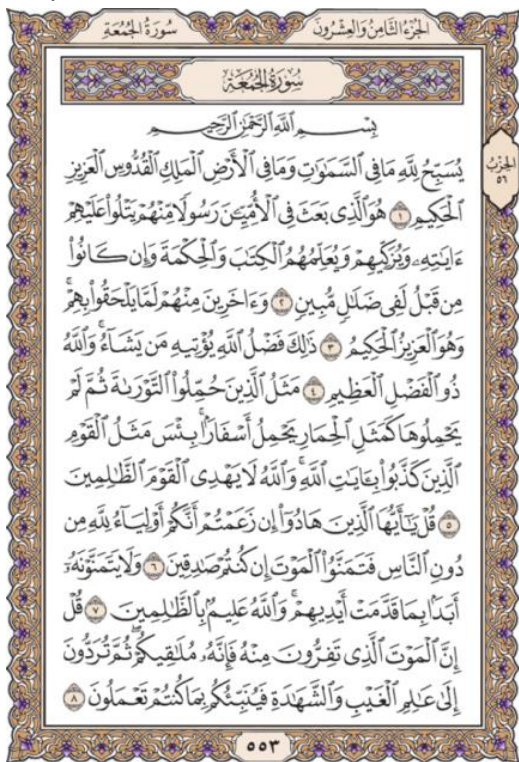 الجزء الثامن والعشرون
سورة الجمعة
سُورَةُ الجُمُعَةِ
بِسْمِ ٱللَّهِ ٱلرَّحْمَٰنِ ٱلرَّحِيمِ
الحزب
٥٦
يُسَبِّحُ لِلَّهِ مَا فِي ٱلسَّمَٰوَٰتِ وَمَا فِي ٱلْأَرْضِ ٱلْمَلِكِ ٱلْقُدُّوسِ ٱلْعَزِيزِ
ٱلْحَكِيمِ ١ هُوَ ٱلَّذِي بَعَثَ فِي ٱلْأُمِّيِّـۧنَ رَسُولًا مِّنْهُمْ يَتْلُوا۟ عَلَيْهِمْ
ءَايَٰتِهِۦ وَيُزَكِّيهِمْ وَيُعَلِّمُهُمُ ٱلْكِتَٰبَ وَٱلْحِكْمَةَ وَإِن كَانُوا۟
مِن قَبْلُ لَفِي ضَلَٰلٍ مُّبِينٍ ٢ وَءَاخَرِينَ مِنْهُمْ لَمَّا يَلْحَقُوا۟ بِهِمْ
وَهُوَ ٱلْعَزِيزُ ٱلْحَكِيمُ ٣ ذَٰلِكَ فَضْلُ ٱللَّهِ يُؤْتِيهِ مَن يَشَآءُ وَٱللَّهُ
ذُو ٱلْفَضْلِ ٱلْعَظِيمِ ٤ مَثَلُ ٱلَّذِينَ حُمِّلُوا۟ ٱلتَّوْرَىٰةَ ثُمَّ لَمْ
يَحْمِلُوهَا كَمَثَلِ ٱلْحِمَارِ يَحْمِلُ أَسْفَارًۢا بِئْسَ مَثَلُ ٱلْقَوْمِ
ٱلَّذِينَ كَذَّبُوا۟ بِـَٔايَٰتِ ٱللَّهِ وَٱللَّهُ لَا يَهْدِي ٱلْقَوْمَ ٱلظَّٰلِمِينَ
٥ قُلْ يَٰٓأَيُّهَا ٱلَّذِينَ هَادُوٓا۟ إِن زَعَمْتُمْ أَنَّكُمْ أَوْلِيَآءُ لِلَّهِ مِن
دُونِ ٱلنَّاسِ فَتَمَنَّوُا۟ ٱلْمَوْتَ إِن كُنتُمْ صَٰدِقِينَ ٦ وَلَا يَتَمَنَّوْنَهُۥٓ
أَبَدًۢا بِمَا قَدَّمَتْ أَيْدِيهِمْ وَٱللَّهُ عَلِيمٌۢ بِٱلظَّٰلِمِينَ ٧ قُلْ
إِنَّ ٱلْمَوْتَ ٱلَّذِي تَفِرُّونَ مِنْهُ فَإِنَّهُۥ مُلَٰقِيكُمْ ثُمَّ تُرَدُّونَ
إِلَىٰ عَٰلِمِ ٱلْغَيْبِ وَٱلشَّهَٰدَةِ فَيُنَبِّئُكُم بِمَا كُنتُمْ تَعْمَلُونَ ٨
٥٥٣